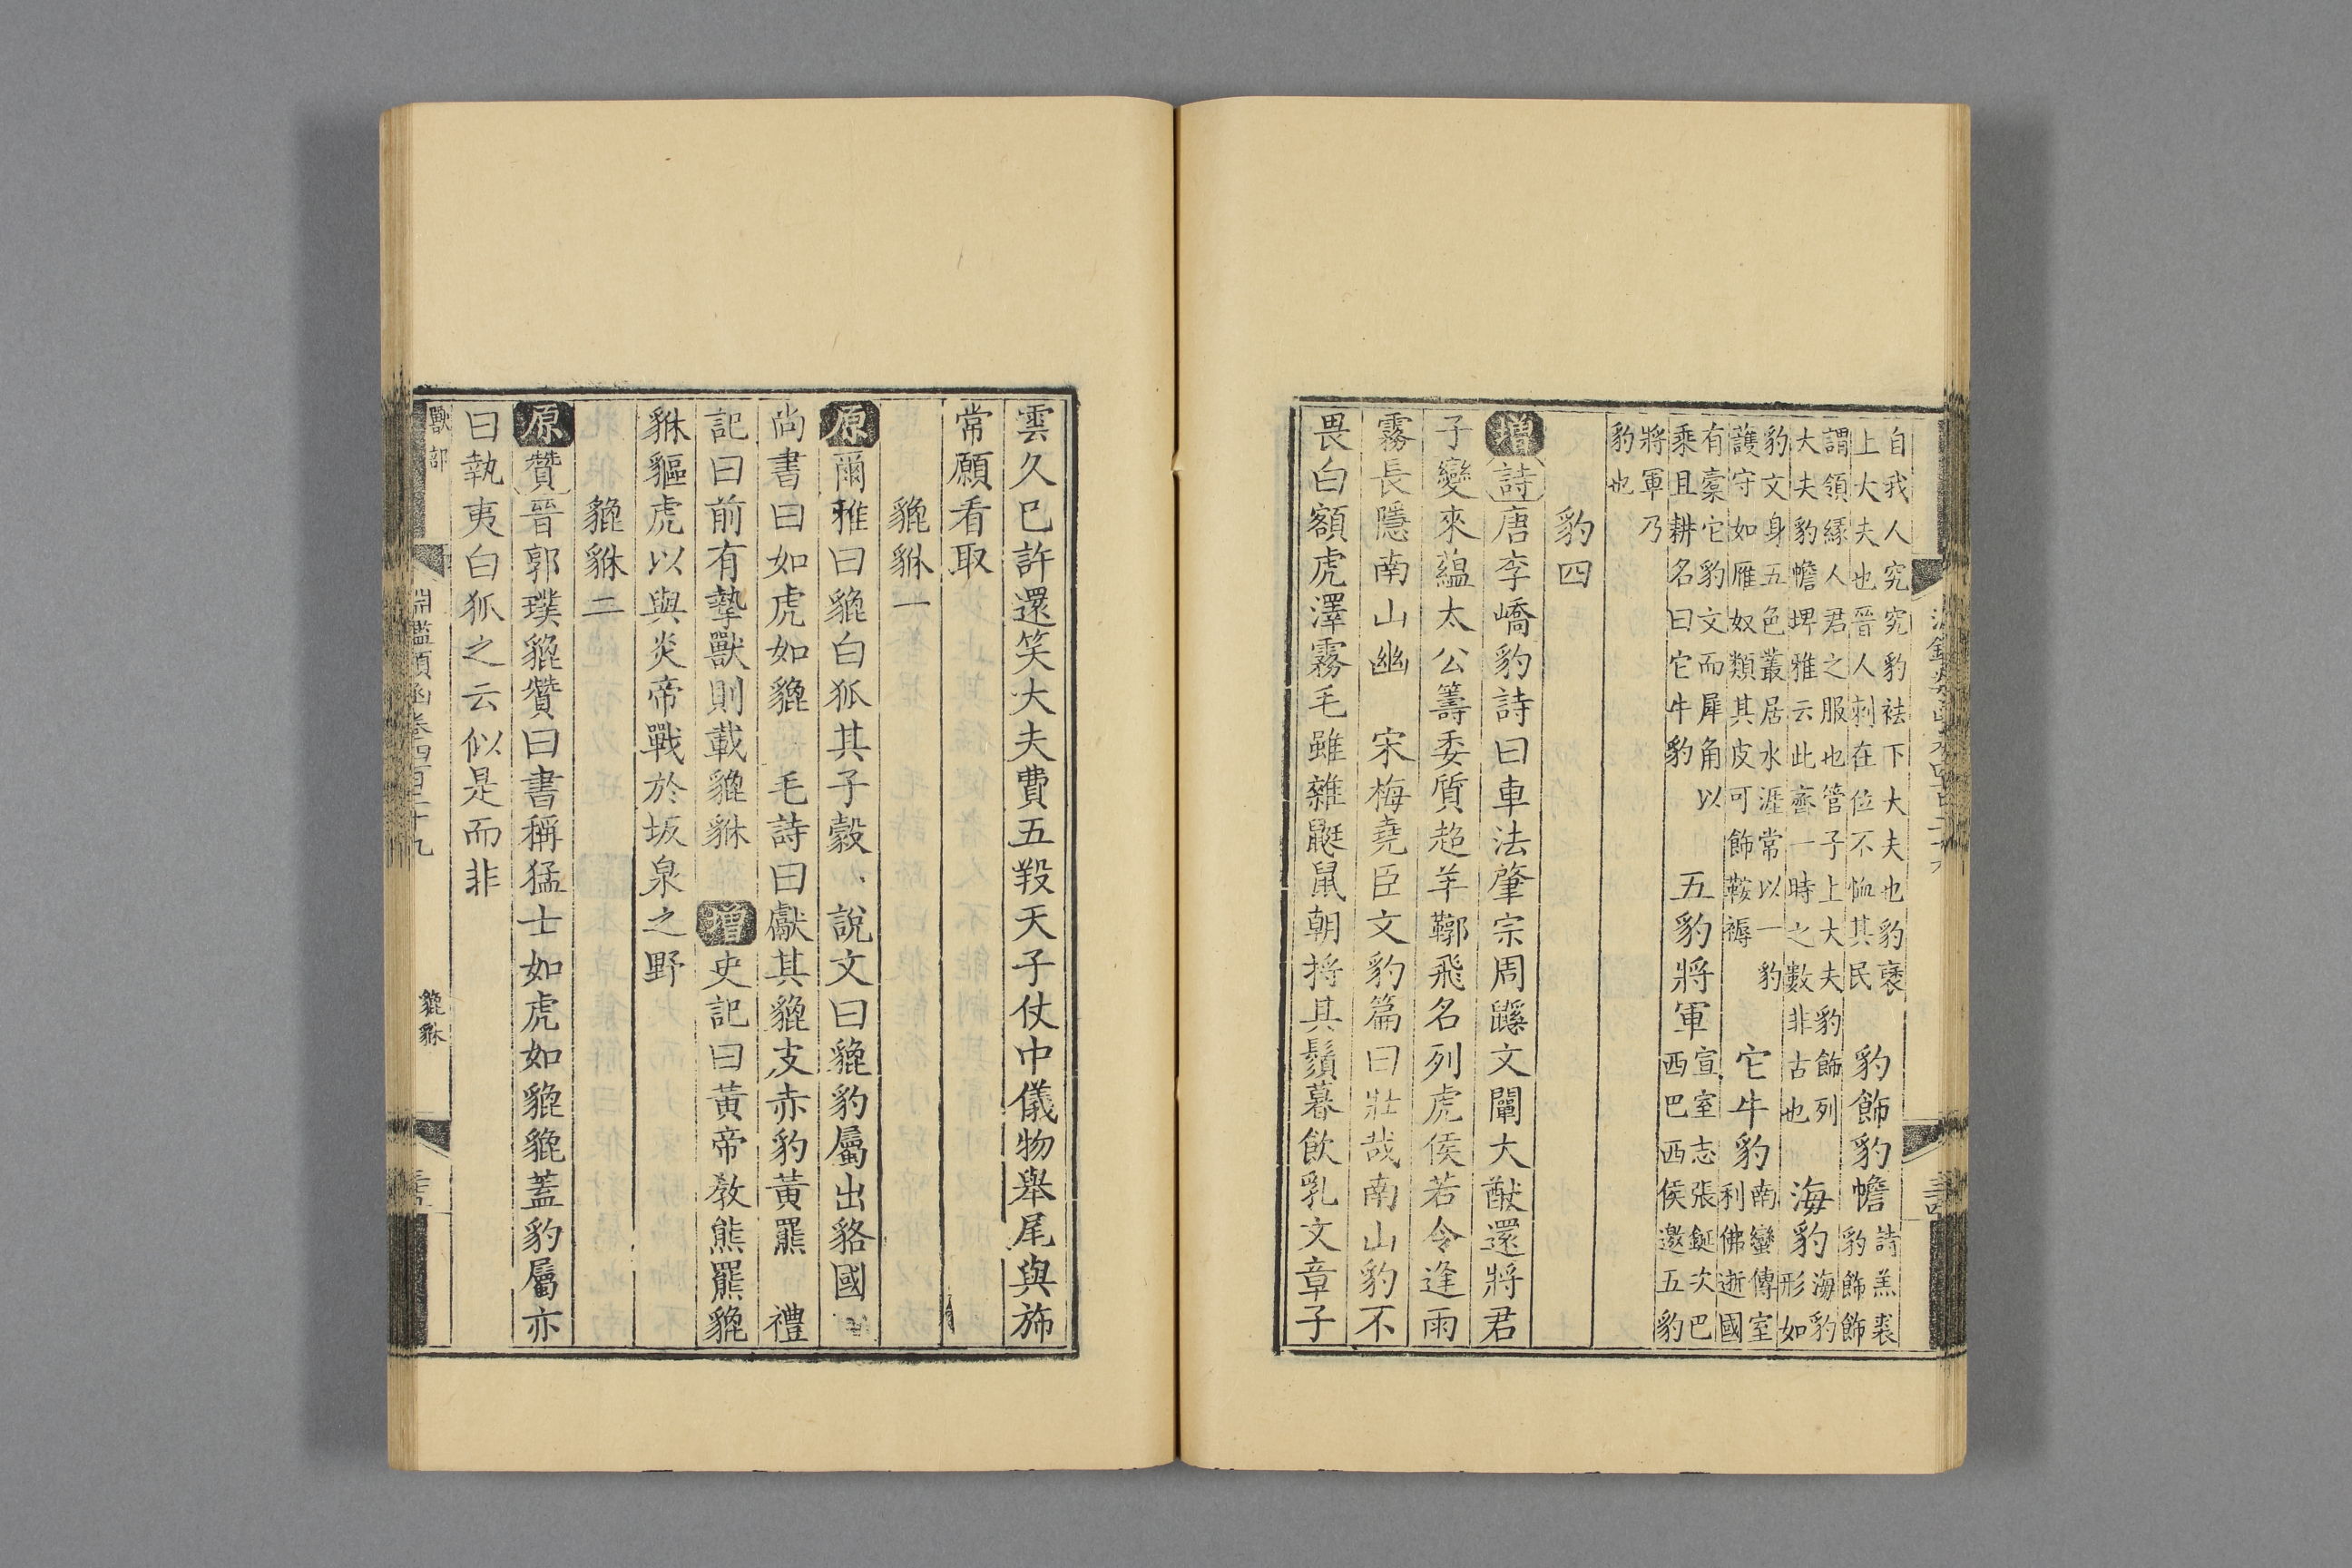 自我人究究豹袪下大夫也豹褎
上大夫也晉人刺在位不恤其民
豹飾豹幨
詩羔裘
豹飾飾
謂領緣人君之服也管子上大夫豹飾列
大夫豹幨埤雅云此齊一時之數非古也
海豹
海豹
形如
豹文身五色叢居水涯常以一豹
護守如雁奴類其皮可飾鞍褥
它牛豹
南蠻傳室
利佛逝國
有橐它豹文而犀角以
乘且耕名曰它牛豹
五豹將軍
宣室志張鋋次巴
西巴西侯邀五豹
將軍乃
豹也
豹四
增詩唐李嶠豹詩曰車法肇宗周鼷文闡大猷還將君
子變來蘊太公籌委質超羊鞹飛名列虎侯若令逢雨
霧長隱南山幽 宋梅堯臣文豹篇曰壯哉南山豹不
畏白額虎澤霧毛雖雜鼮鼠朝捋其鬚暮飲乳文章子
雲久已許還笑大夫費五羖天子仗中儀物舉尾與旆
常願看取
貔貅一
原爾雅曰貔白狐其子縠、說文曰貔豹屬出貉國
尚書曰如虎如貔 毛詩曰獻其貔皮赤豹黃羆 禮
記曰前有摯獸則載貔貅 增史記曰黃帝教熊羆貔
貅貙虎以與炎帝戰於坂泉之野
貔貅二
原贊晉郭璞貔贊曰書稱猛士如虎如貔貔蓋豹屬亦
曰執夷白狐之云似是而非
獸部
淵鑑類函卷四百二十九
貔貅